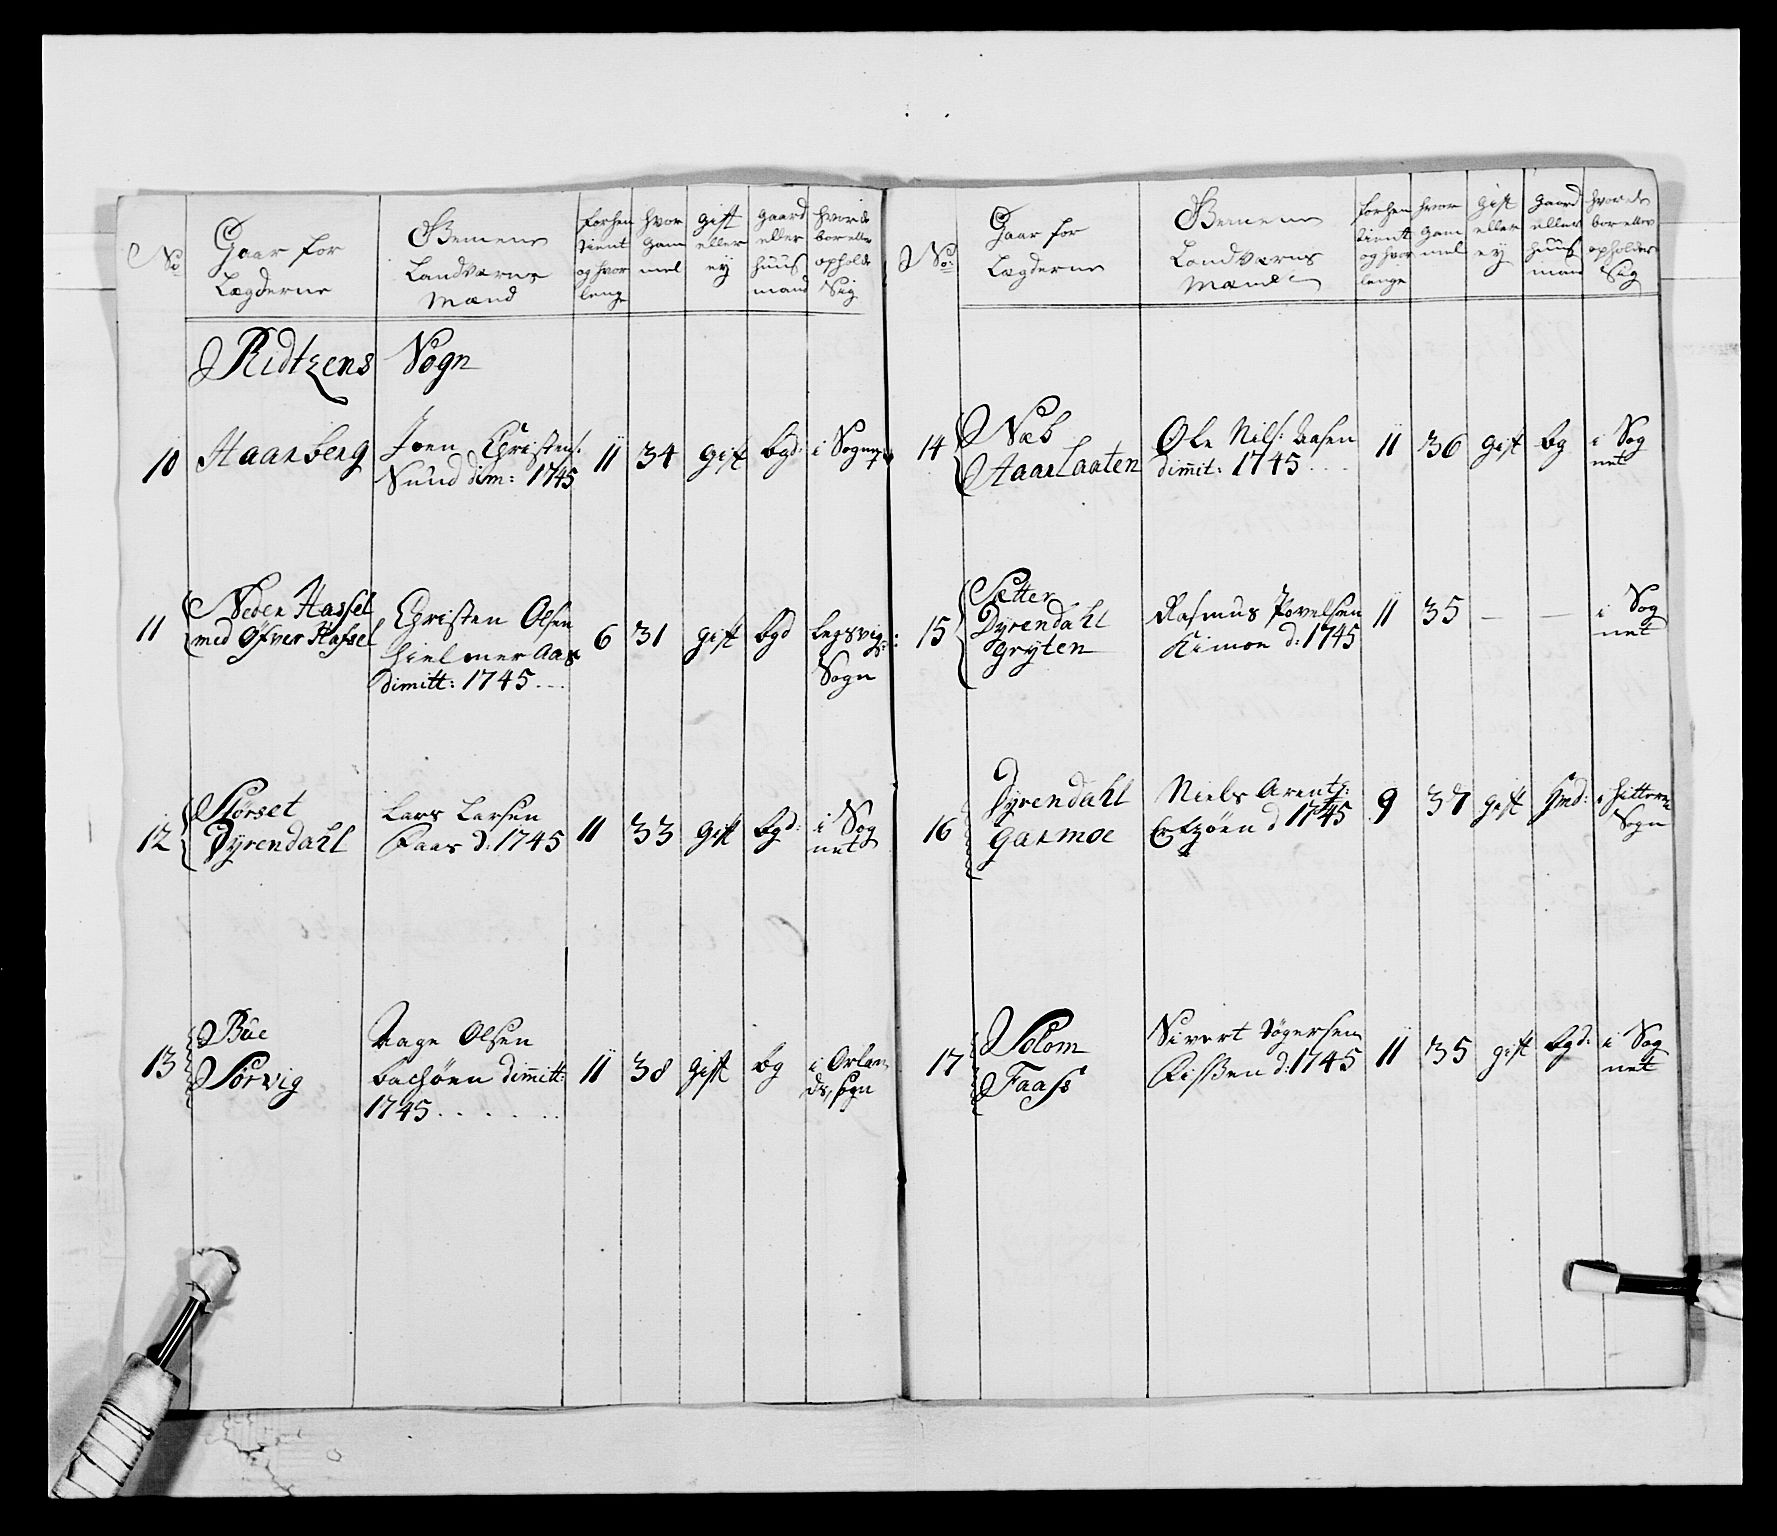 No
Gaar for
Lægderne
Gemene
Landværns
Mænd
forhen
tient
og hvor
lenge
hvor
gam
mel
gift
eller
ey
gaard
eller
huus
mand
hvor de
bor eller
opholde
Sig
Ridtzens Sogn
10 Haarberg
Joen Christens:
Sund dim: 1745
11 34 gift bgd: i Sognet
11 Neder Hassel
med Øfver Hassel
Christen Olsen
hielmer Aas
dimitt: 1745
6 31 gift bgd
Legsvig:
Sogn
12 Størset
Dyrendahl
Lars Larsen
Faas d: 1745
11 33 gift bgd:
i Sog
net
13 Bue
Sørvig
Aage Olsen
bachøen dimitt:
1745
11 38 gift bg
i Ørlan
ds, sogn
No:
Gaar for
Lægderne
Gemene
Landværns
Mænd
forhen
tientt
og hvor
lenge
hvor
gam
mel
gift
eller
ey
gaard
eller
huus
mand
hvor de
bor eller
opholder
Sig
14 Næb
Haarlaaten
Ole Nils: Aasen
dimit: 1745
11 36 gift bg
i Sog
net
15 Sætter
Dyrendahl
gryten
Rasmus Povelsen
Kimoe d: 1745
11 35 — —
i Sog
net
16 Dyrendahl
garmoe
Niels Arentz:
d 1745
9 37 gift
i hitteren
Sogn
17 Solem
Faass
Sivert
Rissen d: 1745
11 35 gift bgd:
i Sog
net